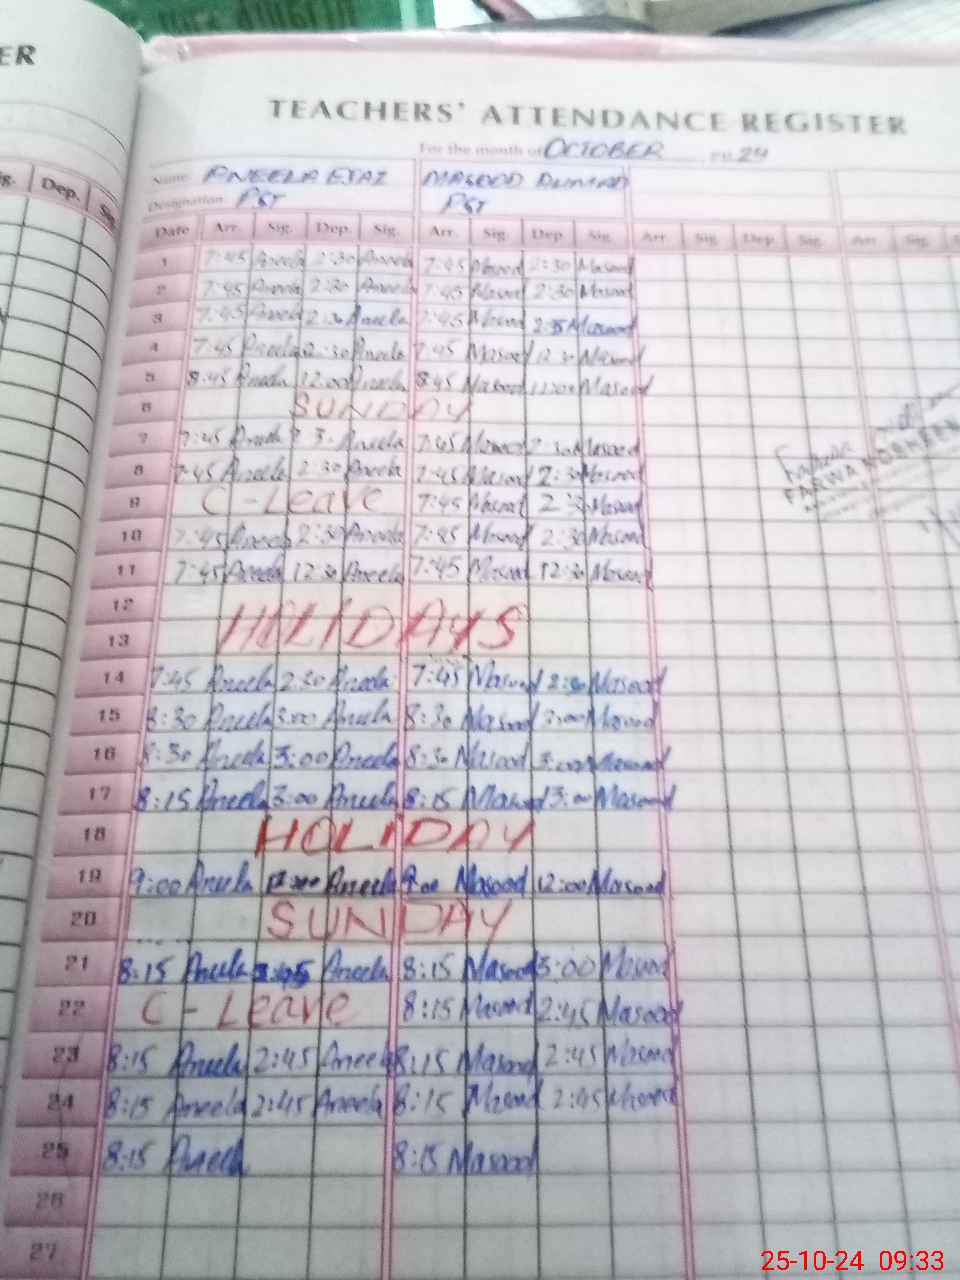 ER
TEACHERS' ATTENDANCE REGISTER
For the month of OCTOBER 24
Name ANEELA EJAZ MASOOD
Designation PST PST
Dep.
Date Arr. Sig. Dep. Sig. Arr. Sig. Dep. Sig. Arr. Sig. Dep. Sig. Arr. Sig.
1 7:45 Aneela 2:30 Aneela 7:45 Masood 2:30 Masood
2 7:45 Aneela 2:30 Aneela 7:45 Masood 2:30 Masood
3 7:45 Aneela 2:30 Aneela 7:45 Masood Masood
4 7:45 Aneela 2:30 Aneela 7:45 Masood Masood
5 8:45 Aneela 12:00 Aneela 8:45 Masood Masood
6 SUNDAY
7 7:45 Aneela Aneela 7:45 Masood 2:30 Masood
8 7:45 Aneela 2:30 Aneela 7:45 Masood 2:30 Masood
9 C-Leave 7:45 Masood 2:30 Masood
10 7:45 Aneela 2:30 Aneela 7:45 Masood 2:30 Masood
11 7:45 Aneela 12:30 Aneela 7:45 Masood 12:30 Masood
12
HOLIDAYS
13
14 7:45 Aneela 2:30 Aneela 7:45 Masood 2:30 Masood
15 8:30 Aneela 3:00 Aneela 8:30 Masood 3:00 Masood
16 8:30 Aneela 3:00 Aneela 8:30 Masood 3:00 Masood
17 8:15 Aneela 3:00 Aneela 8:15 Masood 3:00 Masood
18 HOLIDAY
19 9:00 Aneela 12:00 Aneela 9:00 Masood 12:00 Masood
20 SUNDAY
21 8:15 Aneela Aneela 8:15 Masood 3:00 Masood
22 C-Leave 8:15 Masood 2:45 Masood
23 8:15 Aneela 2:45 Aneela 8:15 Masood 2:45 Masood
24 8:15 Aneela 2:45 Aneela 8:15 Masood 2:45 Masood
25 8:15 Aneela 8:15 Masood
26
27
FARWA NOSHEEN
25-10-24 09:33